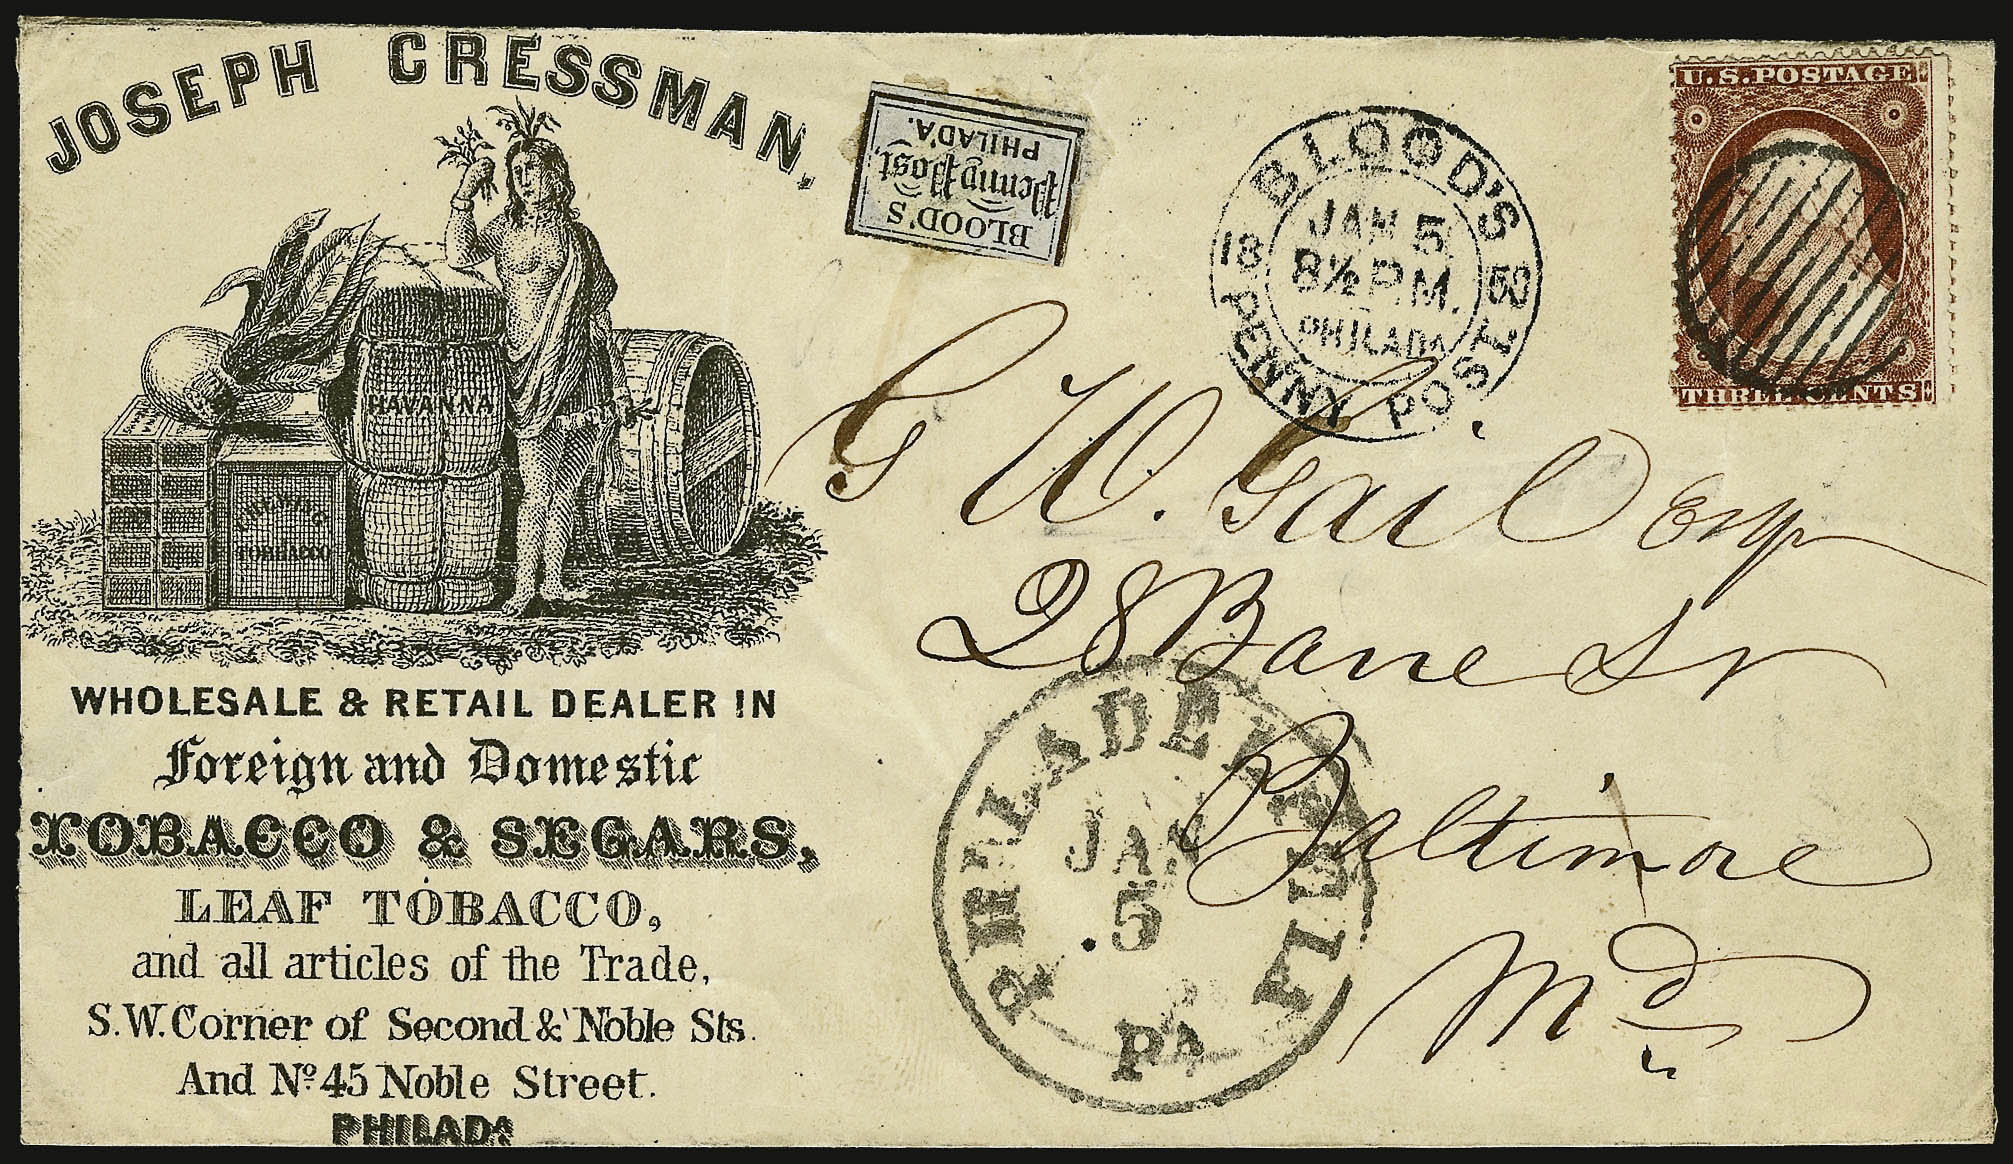 JOSEPH CRESSMAN,
HAVANNA
CHEWING
TOBBACCO
WHOLESALE & RETAIL DEALER IN
Foreign and Domestic
TOBACCO & SEGARS,
LEAF TOBACCO,
and all articles of the Trade,
S.W. Corner of Second & Noble Sts.
And No. 45 Noble Street.
PHILADA
BLOOD'S
Penny Post,
PHILAD'A.
BLOOD'S
JAN 5
18 59
8½ P.M.
PHILADA
PENNY POST
U.S. POSTAGE
THREE CENTS
G W. Gail Esq
28 Barre St
Baltimore
Md
PHILADELPHIA
JAN
5
PA